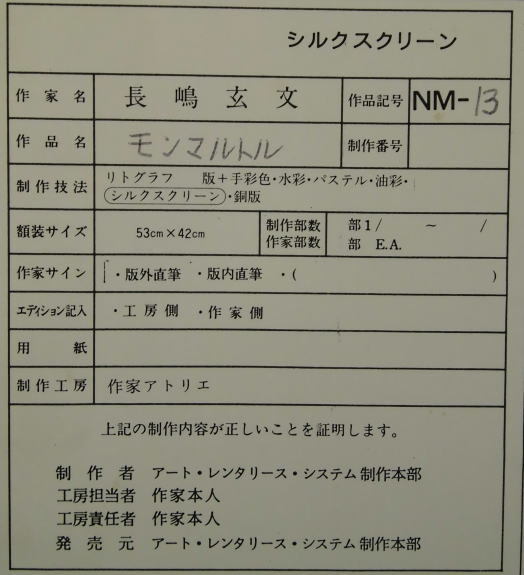 シルクスクリーン
作家名 長嶋玄文 作品記号 NM-13
作品名 モンマルトル 制作番号
制作技法 リトグラフ 版+手彩色・水彩・パステル・油彩・
シルクスクリーン・銅版
額装サイズ 53cm×42cm 制作部数 部1/ ~ /
作家部数 部 E.A.
作家サイン ・版外直筆 ・版内直筆 ・( )
エディション記入 ・工房側 ・作家側
用紙
制作工房 作家アトリエ
上記の制作内容が正しいことを証明します。
制作者 アート・レンタリース・システム制作本部
工房担当者 作家本人
工房責任者 作家本人
発売元 アート・レンタリース・システム制作本部